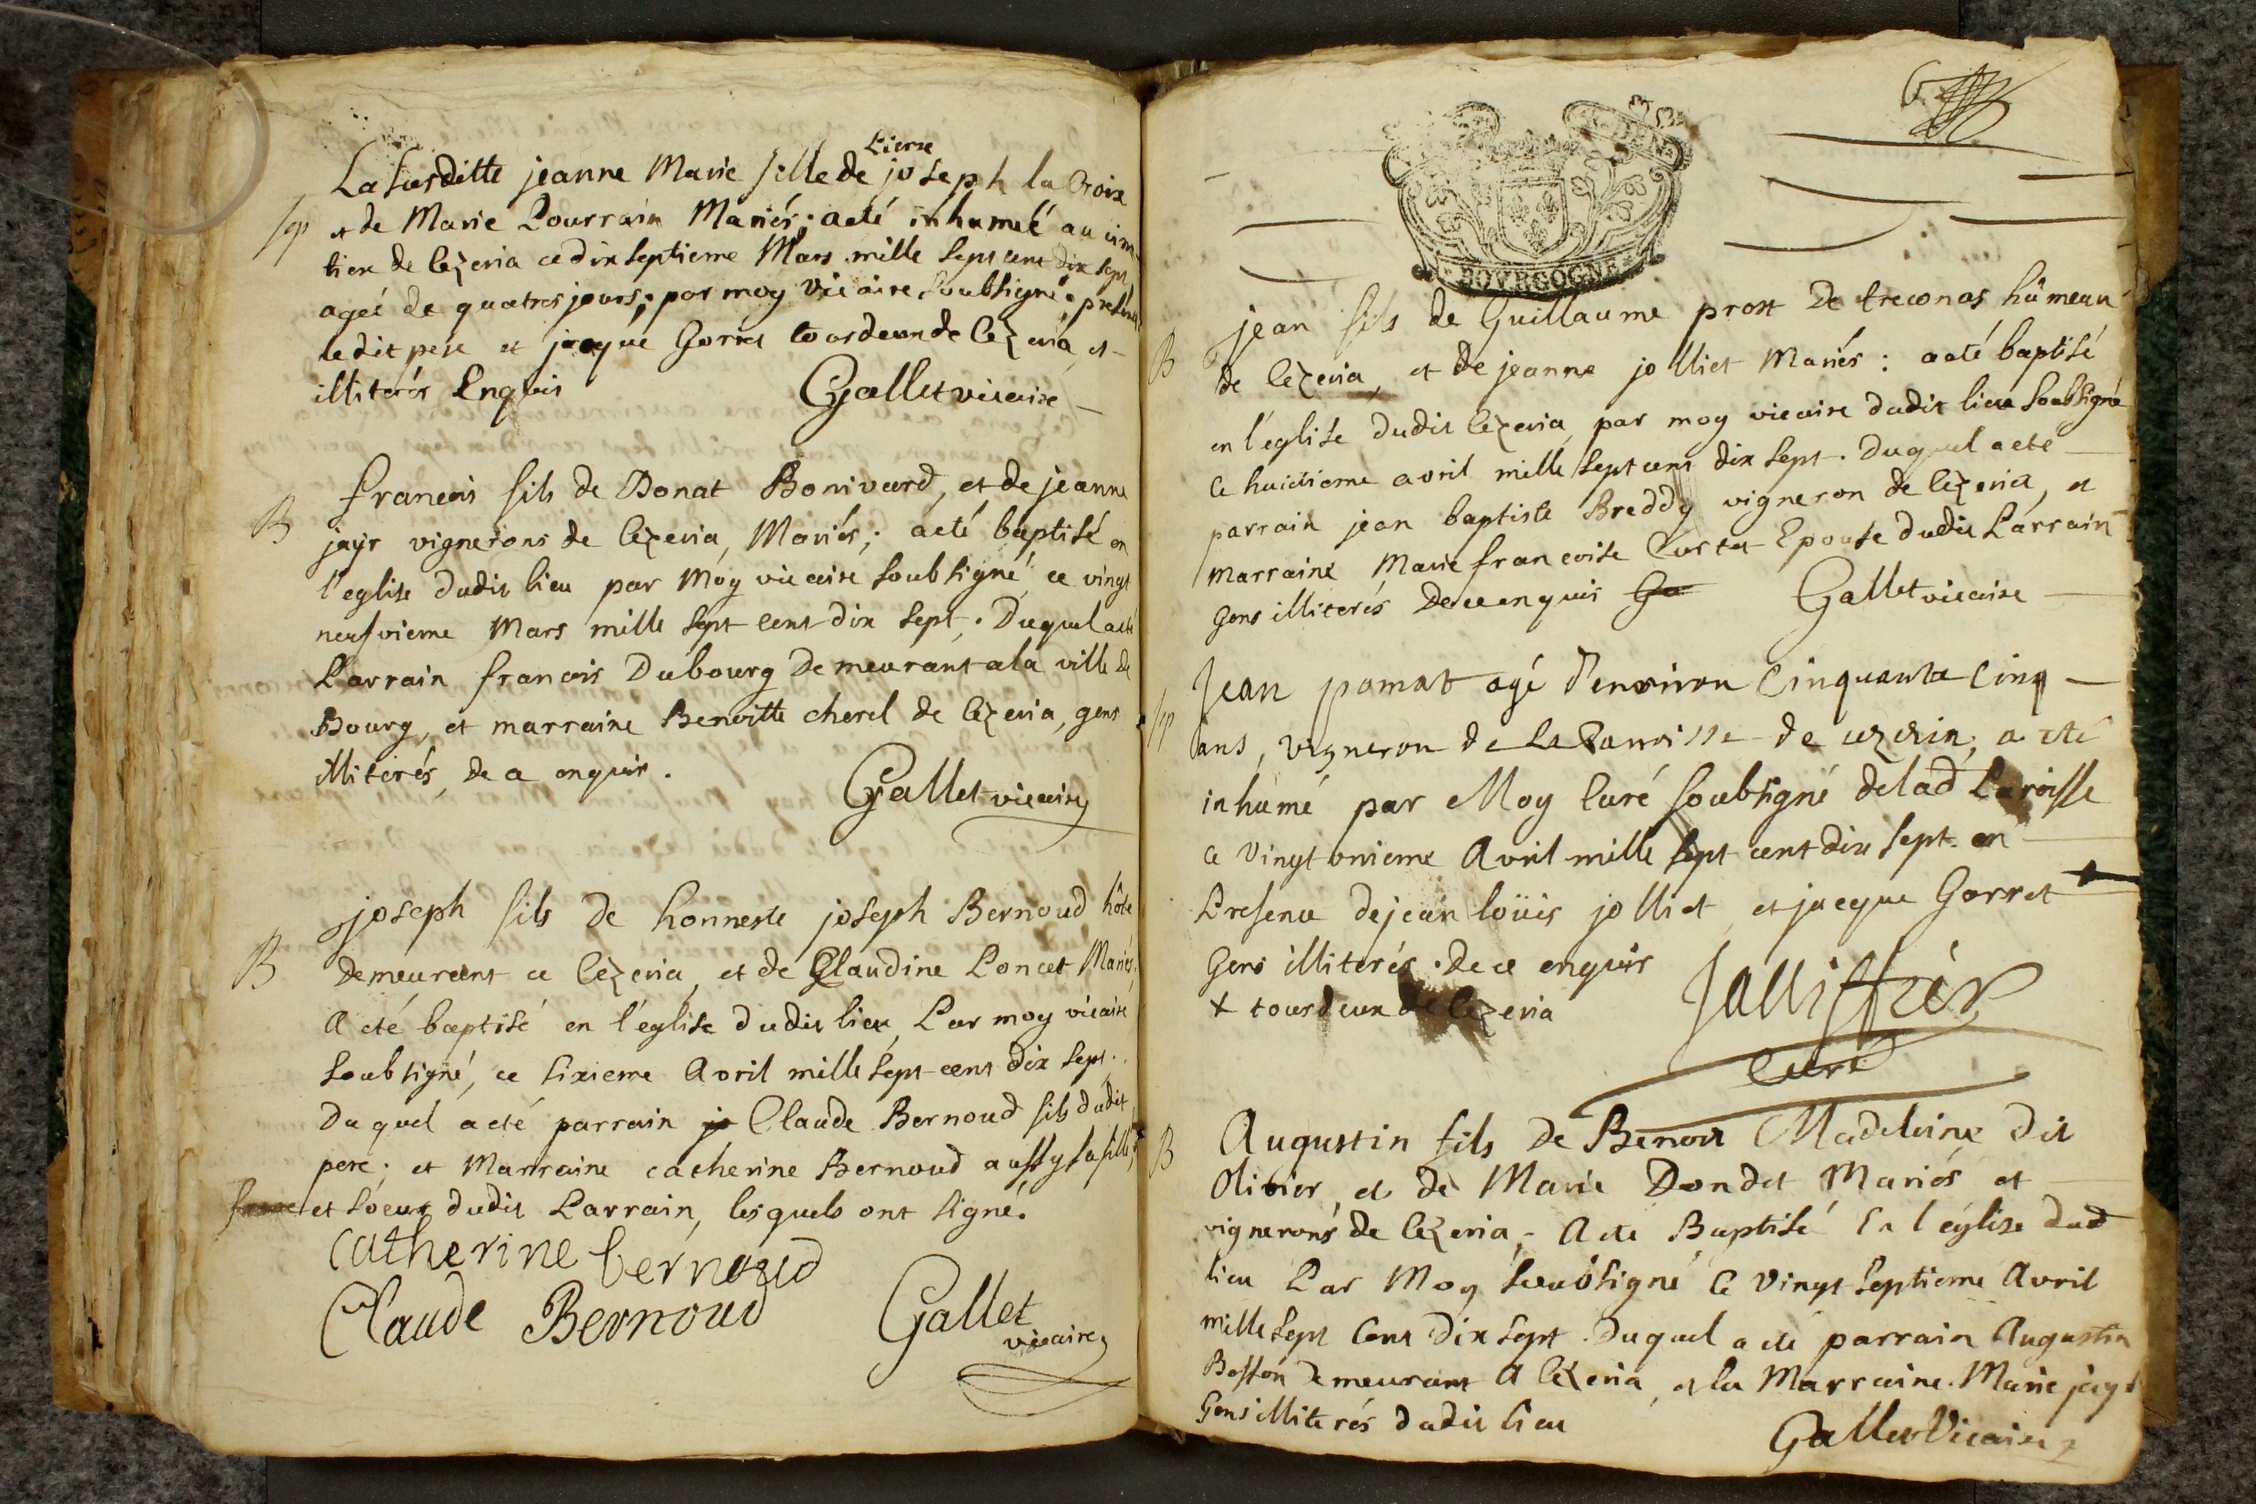 La susditte jeanne Marie fille de Pierre joseph la Croix
Sep et de Marie Pourrain Mariés; a eté inhumeé au cim
tiere de Cezeria ce dix septieme Mars mille sept cent dix sept
ageé de quatres jours; par moy vicaire soubsigné; presents
ledit pere et jacque Gorret tourdeur de Cezeria, et
illiterés Enquis Gallet vicaire
B francois fils de Donat Bonivard, et de jeanne
jayr vignerons de Cezeria, Mariés; a eté baptisé en
l'eglise dudit lieu par Moy vicaire soubsigné ce vingt
neufvieme Mars mille sept cent dix sept. Duquel a eté
Parrain francois Dubourg demeurant a la ville de
Bourg, et marraine Benoitte cherel de Cezeria, gens
illiterés, de ce enquis.
Gallet vicaire
joseph fils de honneste joseph Bernoud hôte
B demeurant a Cezeria, et de Claudine Poncet Mariés
A eté baptisé en l'eglise dudit lieu, Par moy vicaire
soubsigné, ce sixieme Avril mille sept cent dix sept.
Duquel a eté parrain jo Claude Bernoud fils dudit
pere; et Marraine catherine Bernoud aussy sa fille,
et soeur dudit Parrain, lesquels ont signé.
Catherine bernoud
Claude Bernoud Gallet
vicaire
6
BOVRGOGNE
jean fils de Guillaume prost de treconas hameau
B de Cezeria, et de jeanne jolliet Mariés: a eté baptisé
en l'eglise dudit Cezeria, par moy vicaire dudit lieu soubsigné
ce huitieme avril mille sept cent dix sept. Duquel a eté
parrain jean baptiste Breddy vigneron de Cezeria, et
marraine Marie francoise Curtet Epouse dudit Parrain
gens illiterés de ce enquis Ga Gallet vicaire
Jean pamat agé d'environ Cinquante Cinq
Sep ans, vigneron de La Parroisse de cezeria, a eté
inhumé par Moy Curé soubsigné de lad Paroisse
ce vingt onieme Avril mille sept cent dix sept. en
Presence de jean loüis jolliet et jacque Gorret +
Gens illiterés. de ce enquis
+ tourdeur de Cezeria Jalliffier
Curé
B Augustin fils de Benoit Madeleine dit
Olivier, et de Marie Dondet Mariés et
vignerons de Cezeria, A eté Baptisé En l'eglise dud
lieu Par Moy soubsigné Ce vingt septieme Avril
mille sept Cent Dix sept. Duquel a eté parrain Augustin
Bosson demeurant A Cezeria, et la Marraine Marie jayr
Gens illiterés dudit lieu
Gallet Vicaire